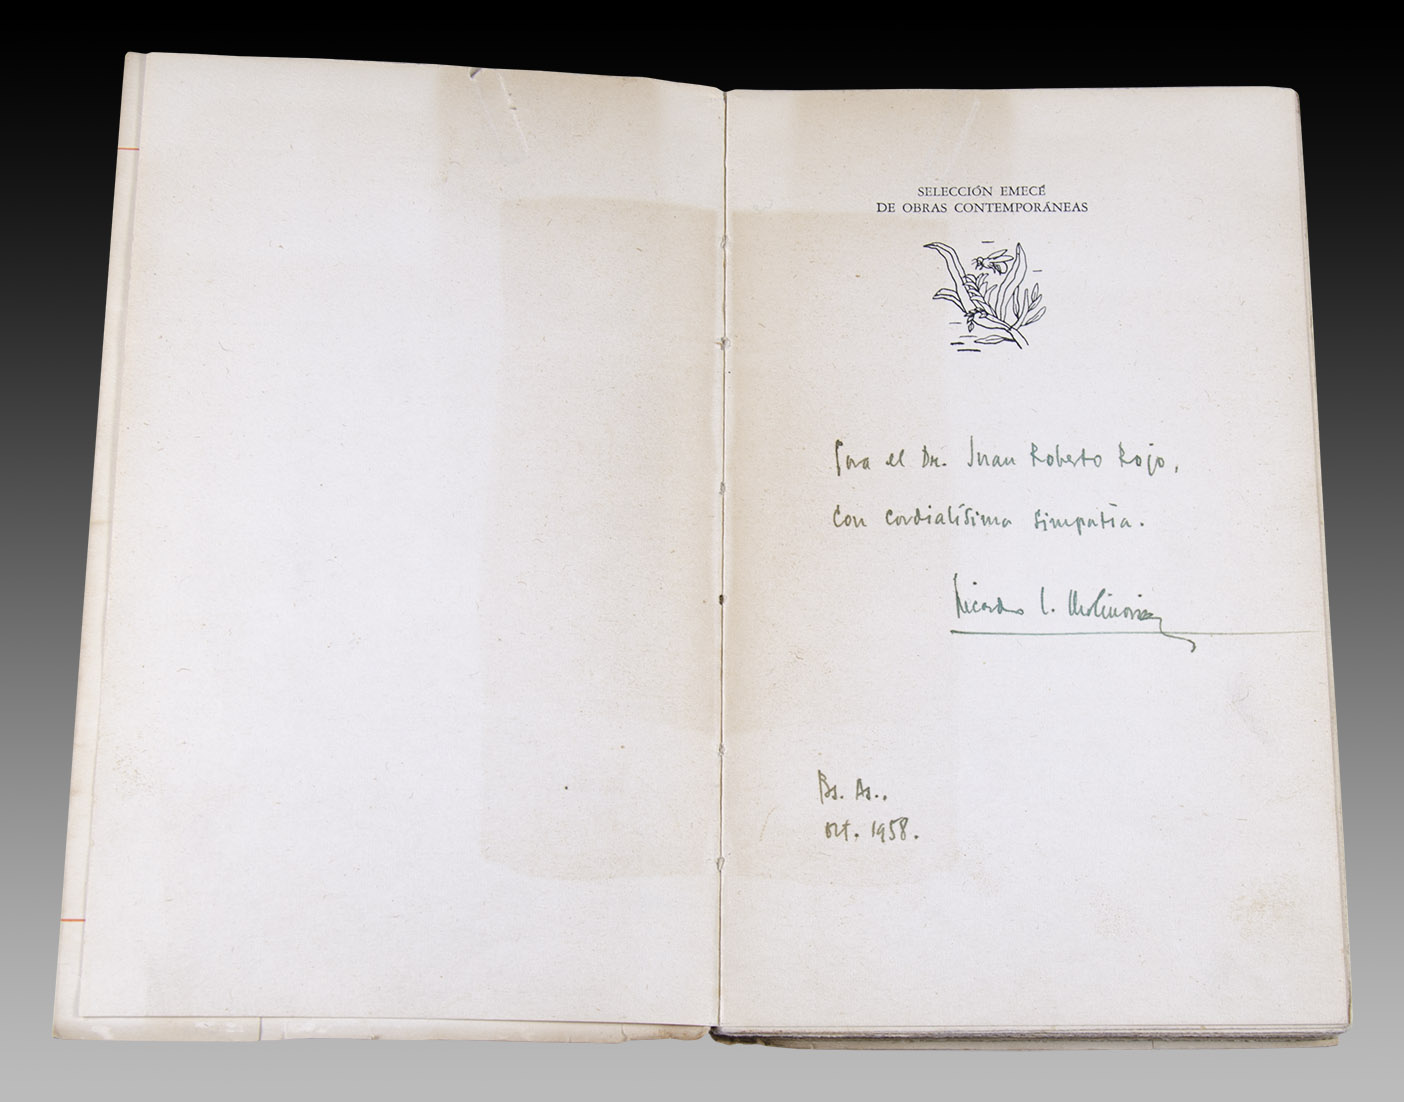 SELECCIÓN EMECÉ
DE OBRAS CONTEMPORÁNEAS
Para el Dr. Juan Roberto Rojo,
con cordialísima simpatía.
Ricardo E. Molinari
Bs. As.,
oct. 1958.